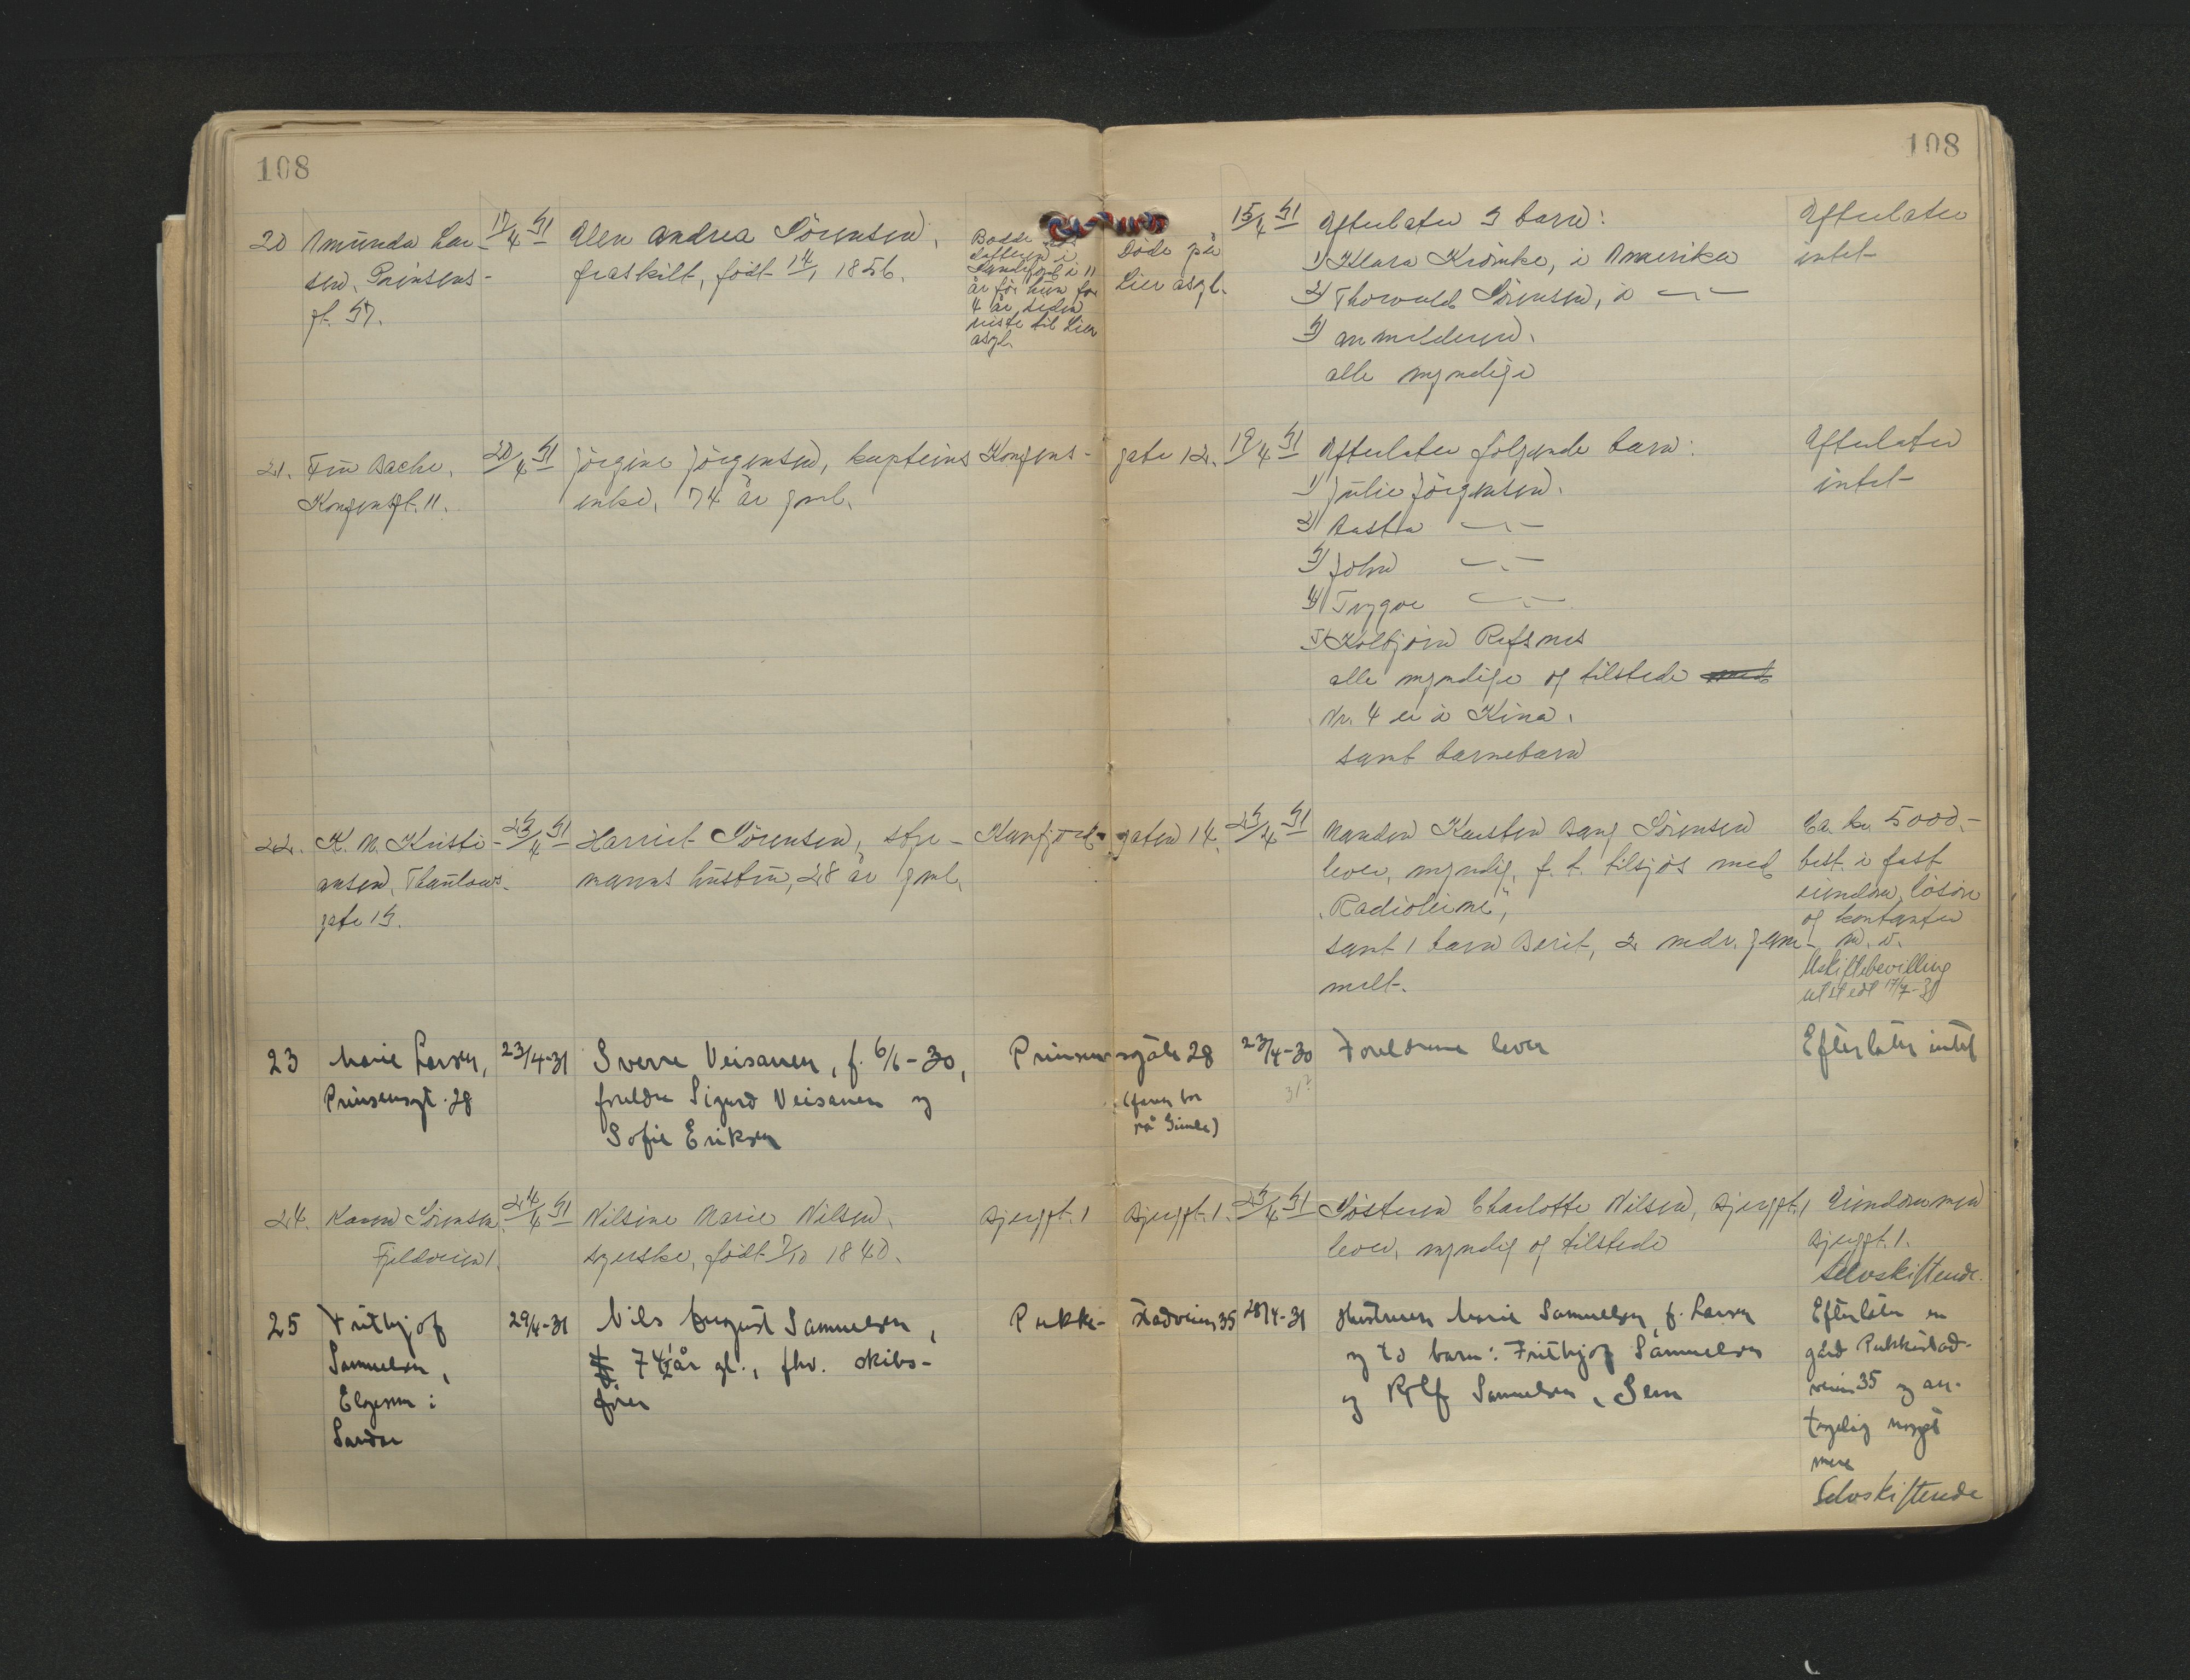 108
108
20 Amunda Lar-
sen, Prinsens-
gt. 37.
17/4 31
Alen Andrea Sörensen,
fraskilt, född 14/1 1856.
Bodde hos
datteren i
Sandefjord i 11
år för hun for
4 år siden
reiste til Lier
asyl.
Döde på
Lier asyl.
15/4 31
Efterlater 3 barn:
1) Klara Krömke, i Amerika
2) Thorvald Sörensen, i —〃—
3) anmelderen.
alle myndige
Efterlater
intet
21. Finn Bache,
Kongensgt. 11.
20/4 31
Jörgine Jörgensen, kapteins
enke, 74 år gml.
Kongens-
gate 12.
19/4 31
Efterlater fölgende barn:
1) Julie Jörgensen.
2) Aasta —〃—
3) John —〃—
4) Trygve —〃—
5) Kolbjörn Refsnes
alle myndige og tilstede
Nr. 4 er i Kina.
samt barnebarn
Efterlater
intet
22. K. M. Kristi-
ansen, Thaulows-
gate 13.
23/4 31
Harriet Sörensen, styr-
manns hustru, 28 år gml.
gaten 14.
23/4 31
Manden Karsten Bang Sörensen
lever, myndig, f. t. tilsjös med
"Radioleine",
samt 1 barn Berit, 2 mdr. gam-
melt.
Ca. kr. 5000.-
best. i fast
eiendom, lösöre
og kontanter
m. v.
Uskiftebevilling
utstedt 17/7-31
23 Marie Larsen,
Prinsensgt. 28
23/4-31
Sverre Veisanen, f. 6/6-30,
foreldre Sigurd Veisanen og
Sofie Eriksen
Prinsensgate 28
(faren bor
på Gimle)
23/4-30
31?
Foreldrene lever
Efterlater intet
24. Karen Sörensen
Fjeldveien 1.
24/4 31
Nilsine Marie Nilsen,
syerske, född 7/10 1840.
Bjerggt. 1
Bjerggt. 1.
23/4 31
Sösteren Charlotte Nilsen, Bjerggt. 1
lever, myndig og tilstede
Eiendommen
Bjerggt. 1.
Selvskiftende.
25 Frithjof
Samuelsen,
Elgesem i
Sandar
29/4-31
Nils August Samuelsen,
74½ år gl., fhv. skibs-
förer
Pukke-
stadveien 35
28/4-31
Hustruen Marie Samuelsen, f. Larsen
og to barn: Frithjof Samuelsen
og Rolf Samuelsen, Sem
Efterlater en
gård Pukkestad-
veien 35 og an-
tagelig noget
mere
Selvskiftende